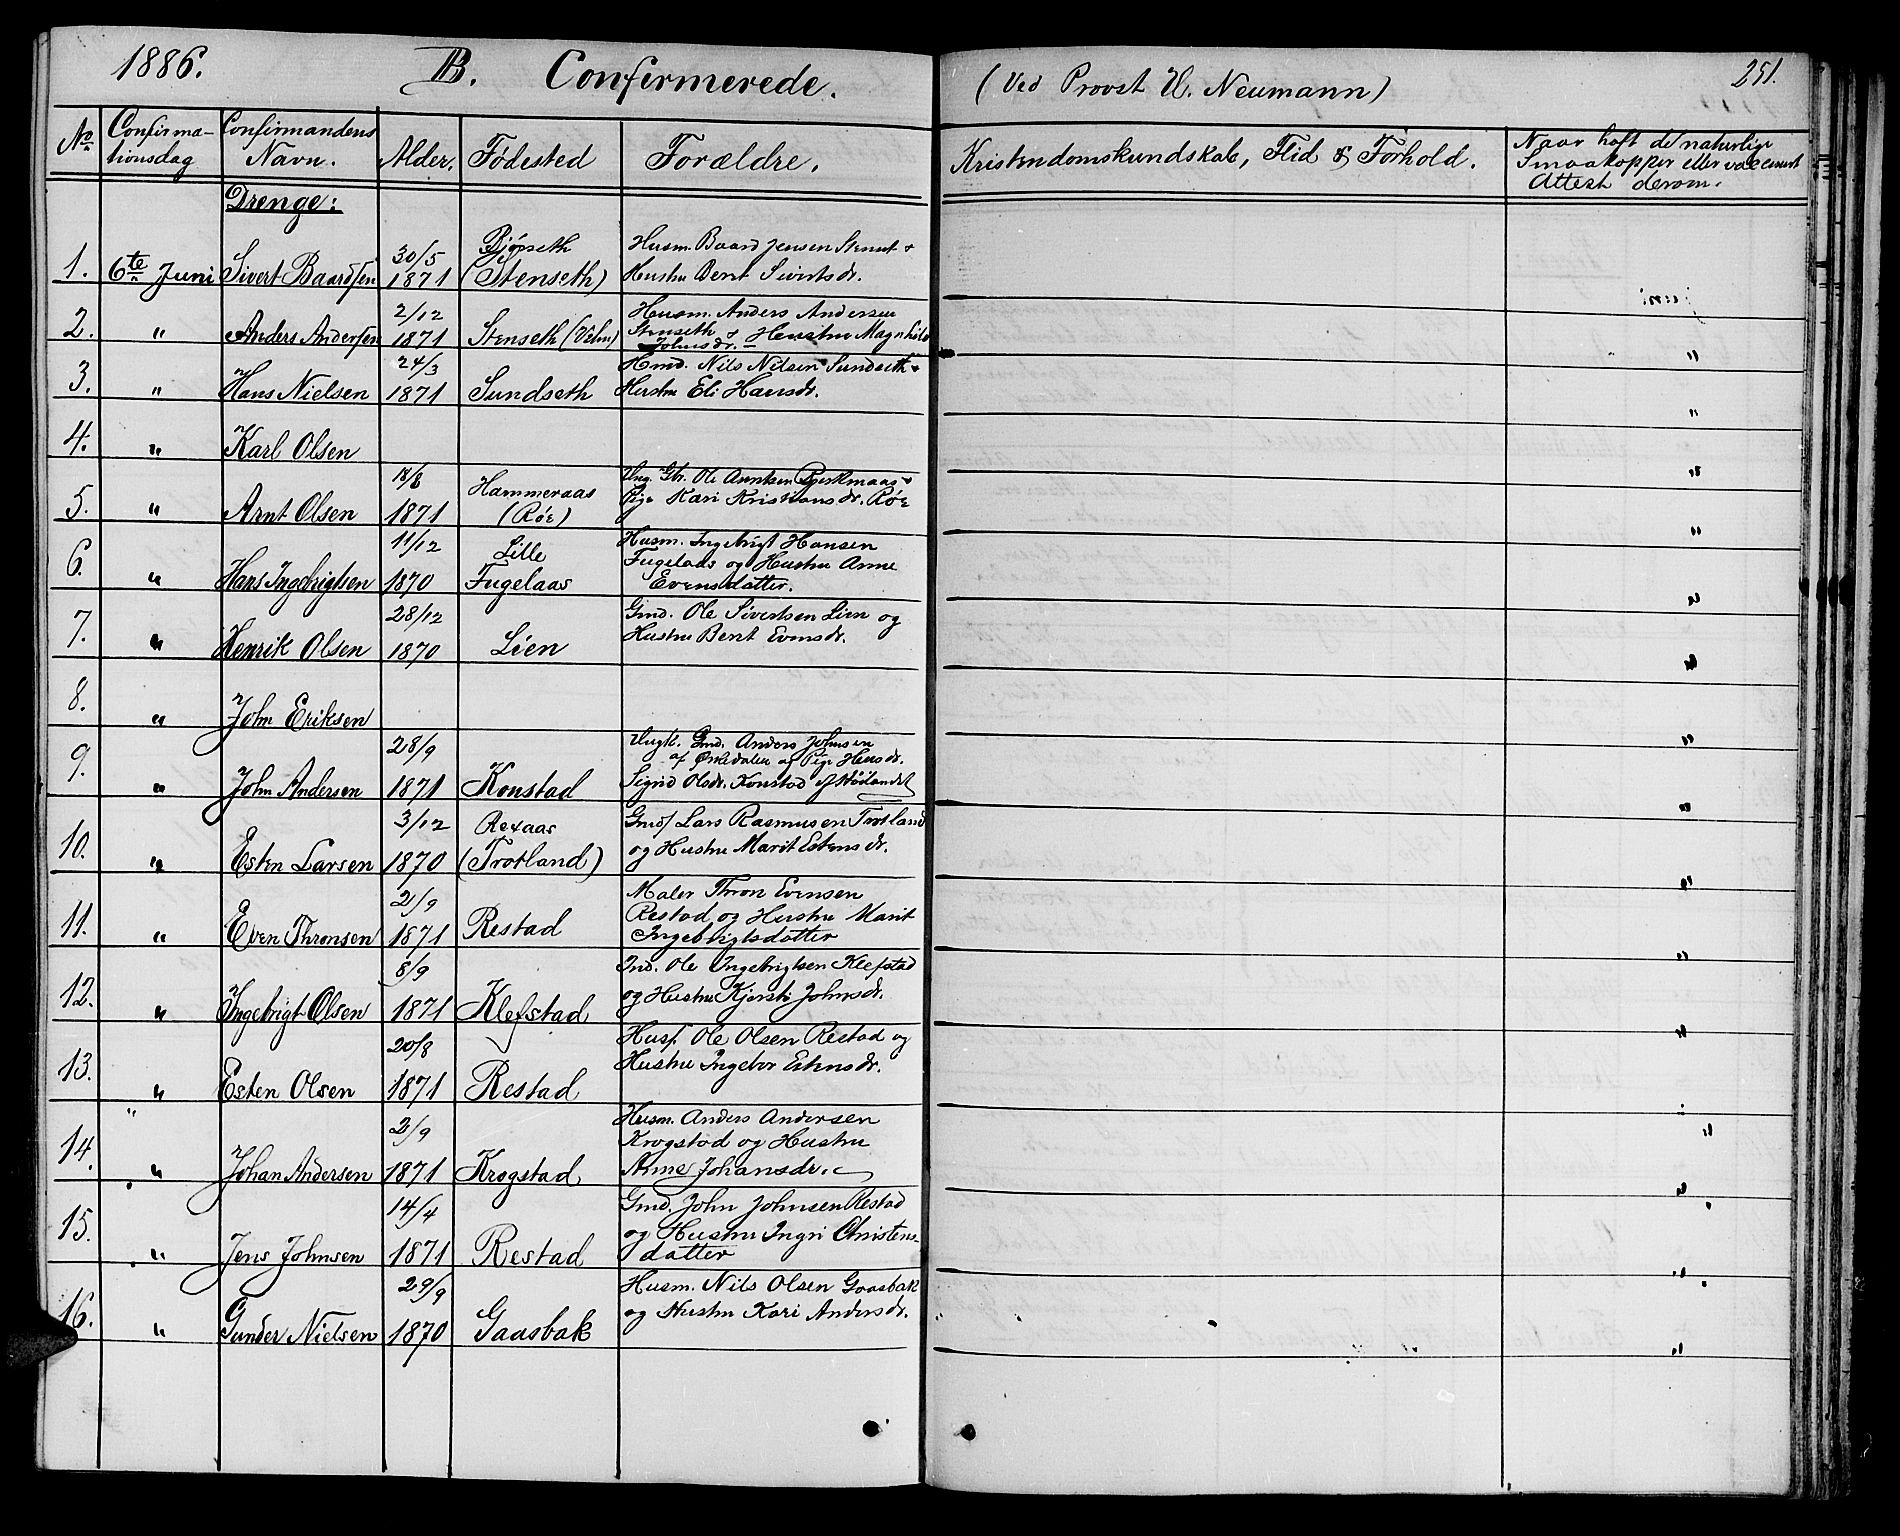 1886. B. Confirmerede. (Ved Provst H. Neumann) 251.
No Confirmationsdag Confirmandens Navn. Alder. Fødested Forældre. Kristendomskundskab, Flid & Forhold. Naar haft de naturlige Smaakopper eller vaccinert Attest derom.
Drenge:
1. 6te Juni Sivert Baardsen 30/5 1871 Bjørseth (Stenseth) Husm. Baard Jensen +
Hustru Berit Sivertsdr.
2. " Anders Andersen 2/12 1871 Stenseth (Velm) Husm. Anders Andersen
Stenseth + Hustru Magnhild
Johnsdr. —
3. " Hans Nielsen 24/3 1871 Sundseth Gmd. Nils Nilsen Sundseth +
Hustru Eli Hansdr. "
4. " Karl Olsen "
5. " Arnt Olsen 18/8 1871 Hammeraas (Röe) Ung. Gbr. Ole Arntsen Bjerkmaas +
Pige Kari Kristiansdr. Röe "
6. " Hans Ingebrigtsen 11/12 1870 Lille Fugelaas Husm. Ingebrigt Hansen
Fugelaas og Hustru Anne
Evensdatter. "
7. " Henrik Olsen 28/12 1870 Lien Gmd. Ole Sivertsen Lien og
Hustru Berit Evensdr. "
8. " John Eriksen "
9. " John Andersen 28/9 1871 Konstad Ungk. Gmd. Anders Johnsen
af Ørkedalen og Pige
Sigrid Olsdr. Konstad af Höilandet "
10. " Esten Larsen 3/12 1870 Rexaas (Trotland) Lars Rasmusen Trotland
og Hustru Marit Estensdr. "
11. " Even Thronsen 2/9 1871 Restad Maler Thron Evensen
Restad og Hustru Marit
Ingebrigtsdatter "
12. " Ingebrigt Olsen 8/9 1871 Klefstad Ind. Ole Ingebrigtsen Klefstad
og Hustru Kjersti Johnsdr. "
13. " Esten Olsen 20/8 1871 Restad Husf. Ole Olsen Restad og
Hustru Ingebor Estensdr.
14. " Johan Andersen 2/9 1871 Krogstad Husm. Anders Andersen
Krogstad og Hustru
Anne Johansdr. "
15. " Jens Johnsen 14/4 1871 Restad Gmd. John Johnsen Restad
og Hustru Ingri Christens-
datter "
16. " Gunder Nielsen 29/9 1870 Gaasbak Husm. Nils Olsen Gaasbak
og Hustru Kari Andersdr. "